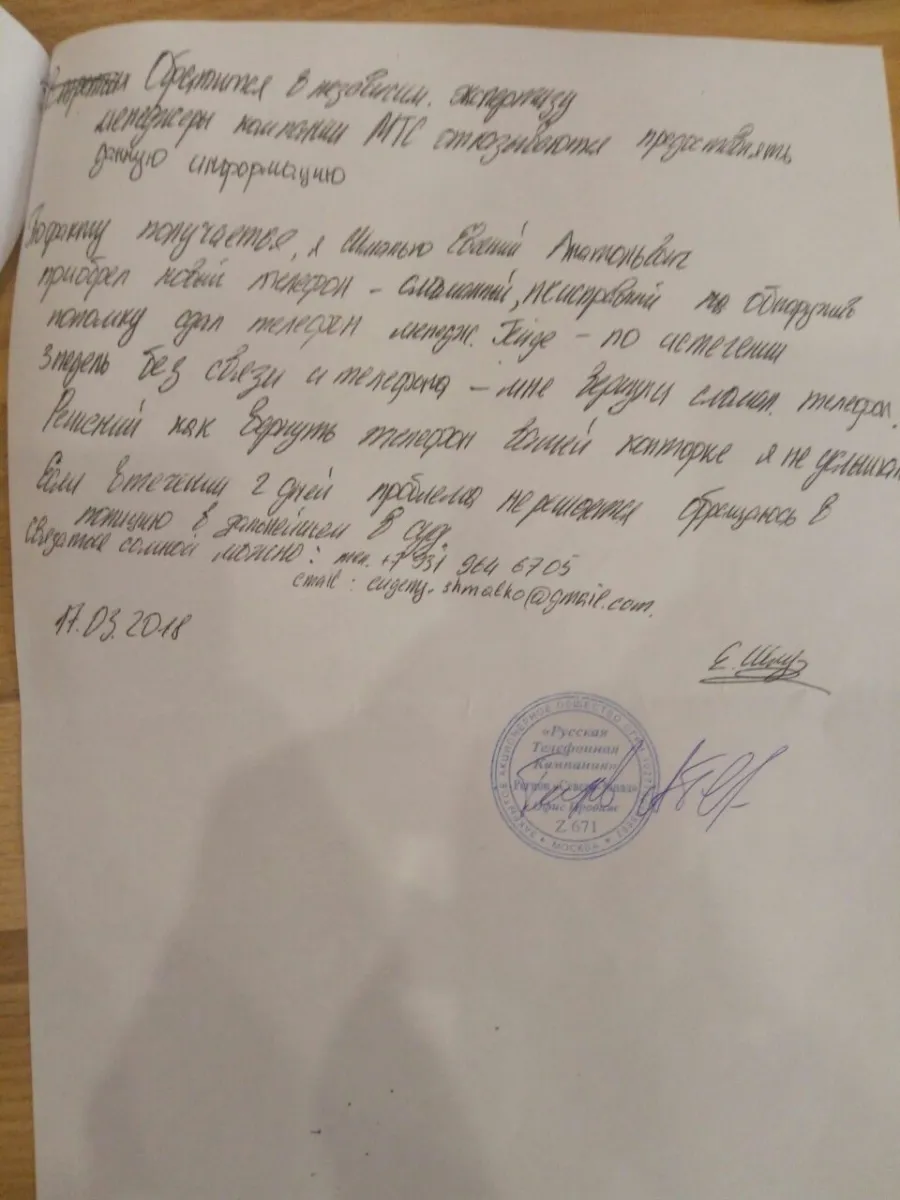 Обратится в независим. экспертизу
менеджеры компании МТС отказываются предоставлять
данную информацию
По факту получается, я Шмалько Евгений Анатольевич
приобрел новый телефон – сломанный, неисправный обнаружив
поломку сдал телефон менедж. – по истечении
3 недель без связи и телефона – мне вернули сломан. телефон.
Решений как вернуть телефон вашей конторке я не услышал
Если в течении 2 дней проблема не решается обращаюсь в
полицию в дальнейшем в суд.
Связаться со мной можно: тел. +7 931 964 6705
email: evgeny.shmalko@gmail.com.
17.03.2018
«Русская
Телефонная
Компания»
Z 671
МОСКВА